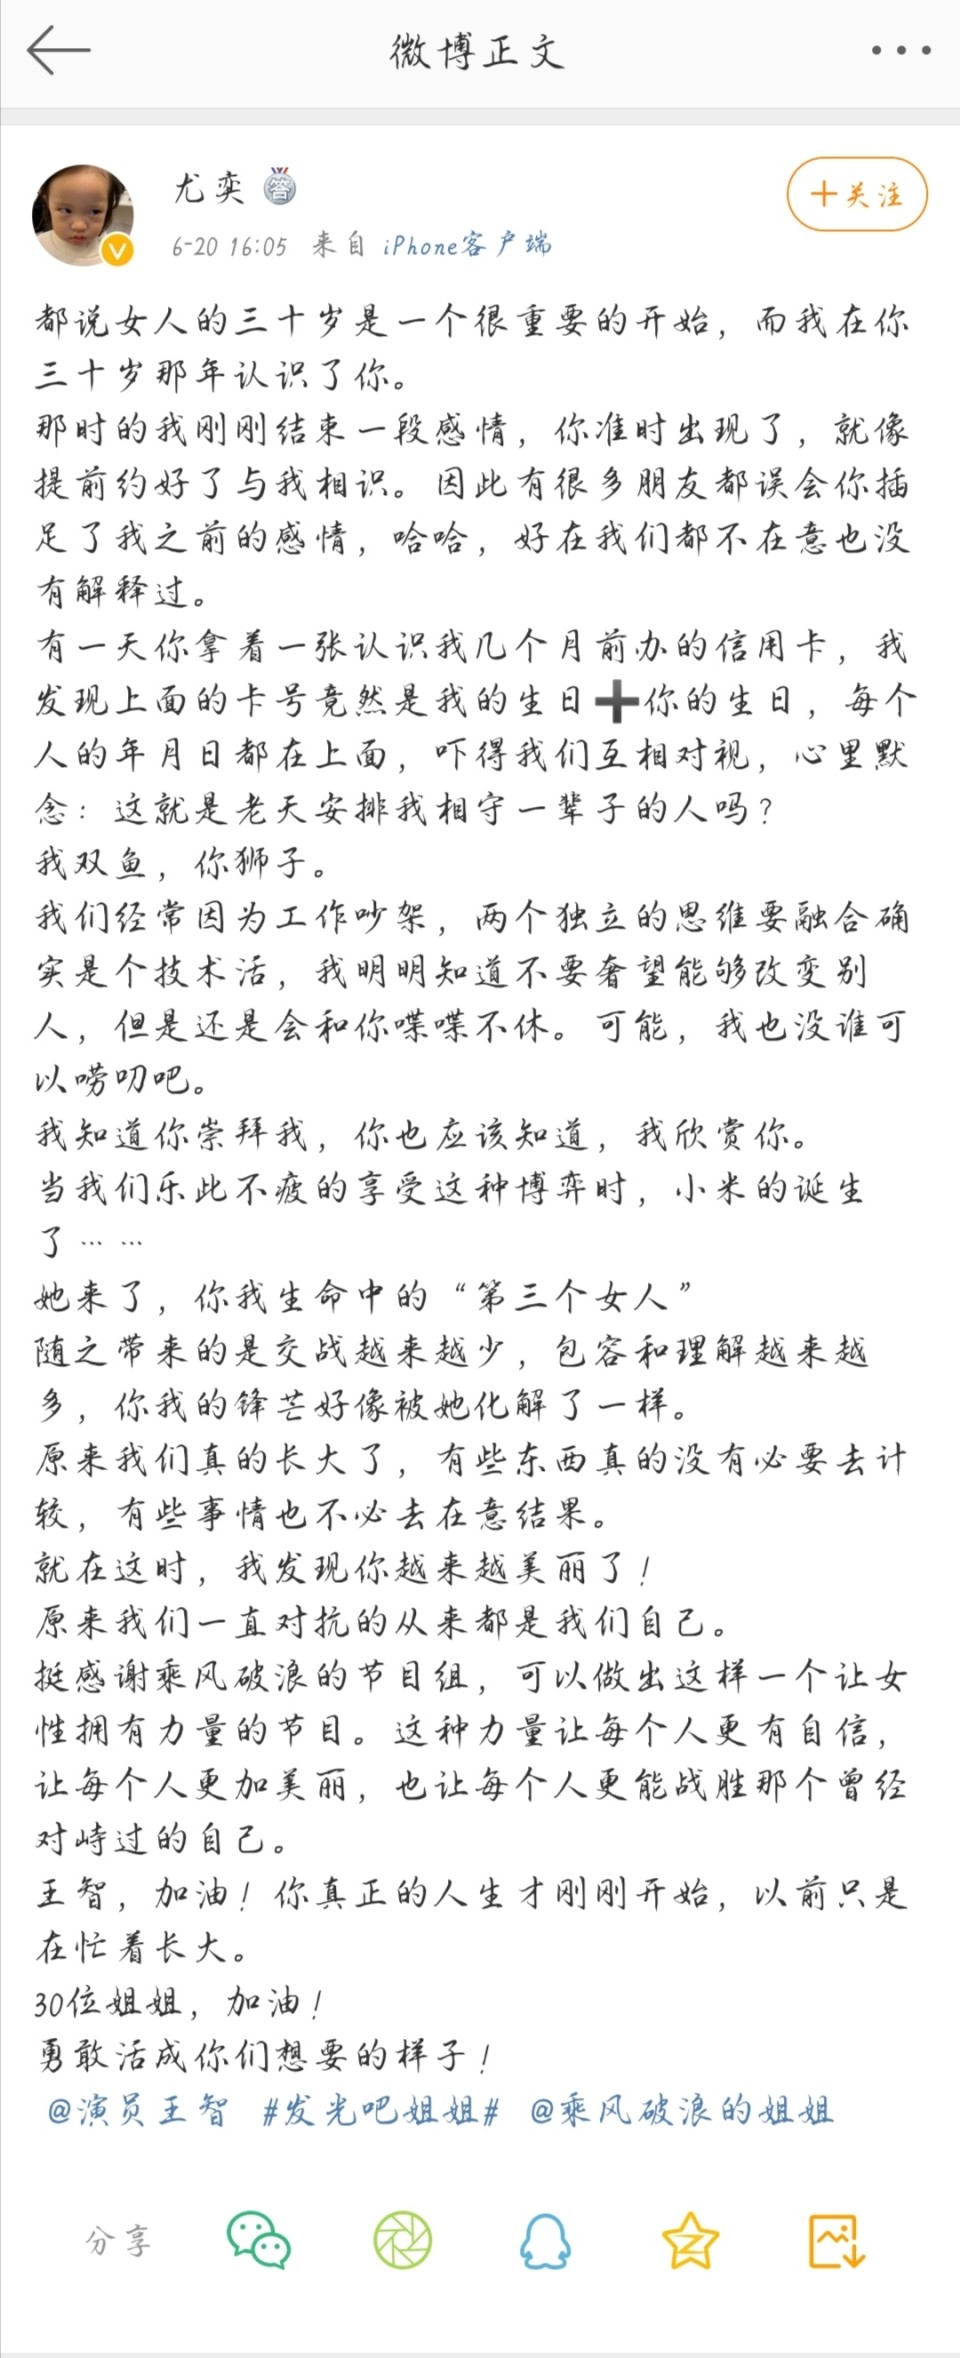 微博正文
尤奕
答
+关注
6-20 16:05 来自 iPhone客户端
都说女人的三十岁是一个很重要的开始，而我在你
三十岁那年认识了你。
那时的我刚刚结束一段感情，你准时出现了，就像
提前约好了与我相识。因此有很多朋友都误会你插
足了我之前的感情，哈哈，好在我们都不在意也没
有解释过。
有一天你拿着一张认识我几个月前办的信用卡，我
发现上面的卡号竟然是我的生日➕你的生日，每个
人的年月日都在上面，吓得我们互相对视，心里默
念：这就是老天安排我相守一辈子的人吗？
我双鱼，你狮子。
我们经常因为工作吵架，两个独立的思维要融合确
实是个技术活，我明明知道不要奢望能够改变别
人，但是还是会和你喋喋不休。可能，我也没谁可
以唠叨吧。
我知道你崇拜我，你也应该知道，我欣赏你。
当我们乐此不疲的享受这种博弈时，小米的诞生
了……
她来了，你我生命中的“第三个女人”
随之带来的是交战越来越少，包容和理解越来越
多，你我的锋芒好像被她化解了一样。
原来我们真的长大了，有些东西真的没有必要去计
较，有些事情也不必去在意结果。
就在这时，我发现你越来越美丽了！
原来我们一直对抗的从来都是我们自己。
挺感谢乘风破浪的节目组，可以做出这样一个让女
性拥有力量的节目。这种力量让每个人更有自信，
让每个人更加美丽，也让每个人更能战胜那个曾经
对峙过的自己。
王智，加油！你真正的人生才刚刚开始，以前只是
在忙着长大。
30位姐姐，加油！
勇敢活成你们想要的样子！
@演员王智 #发光吧姐姐# @乘风破浪的姐姐
分享